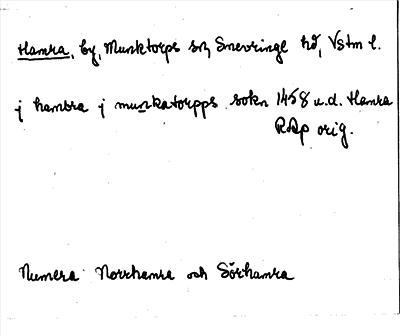 Hamra, by, Munktorps sn, Snevringe hd, Vstm l.
j hambra j munkatorpps sokn 1458 u.d. Hamra
RAp orig.
Numera Norrhamra och Sörhamra